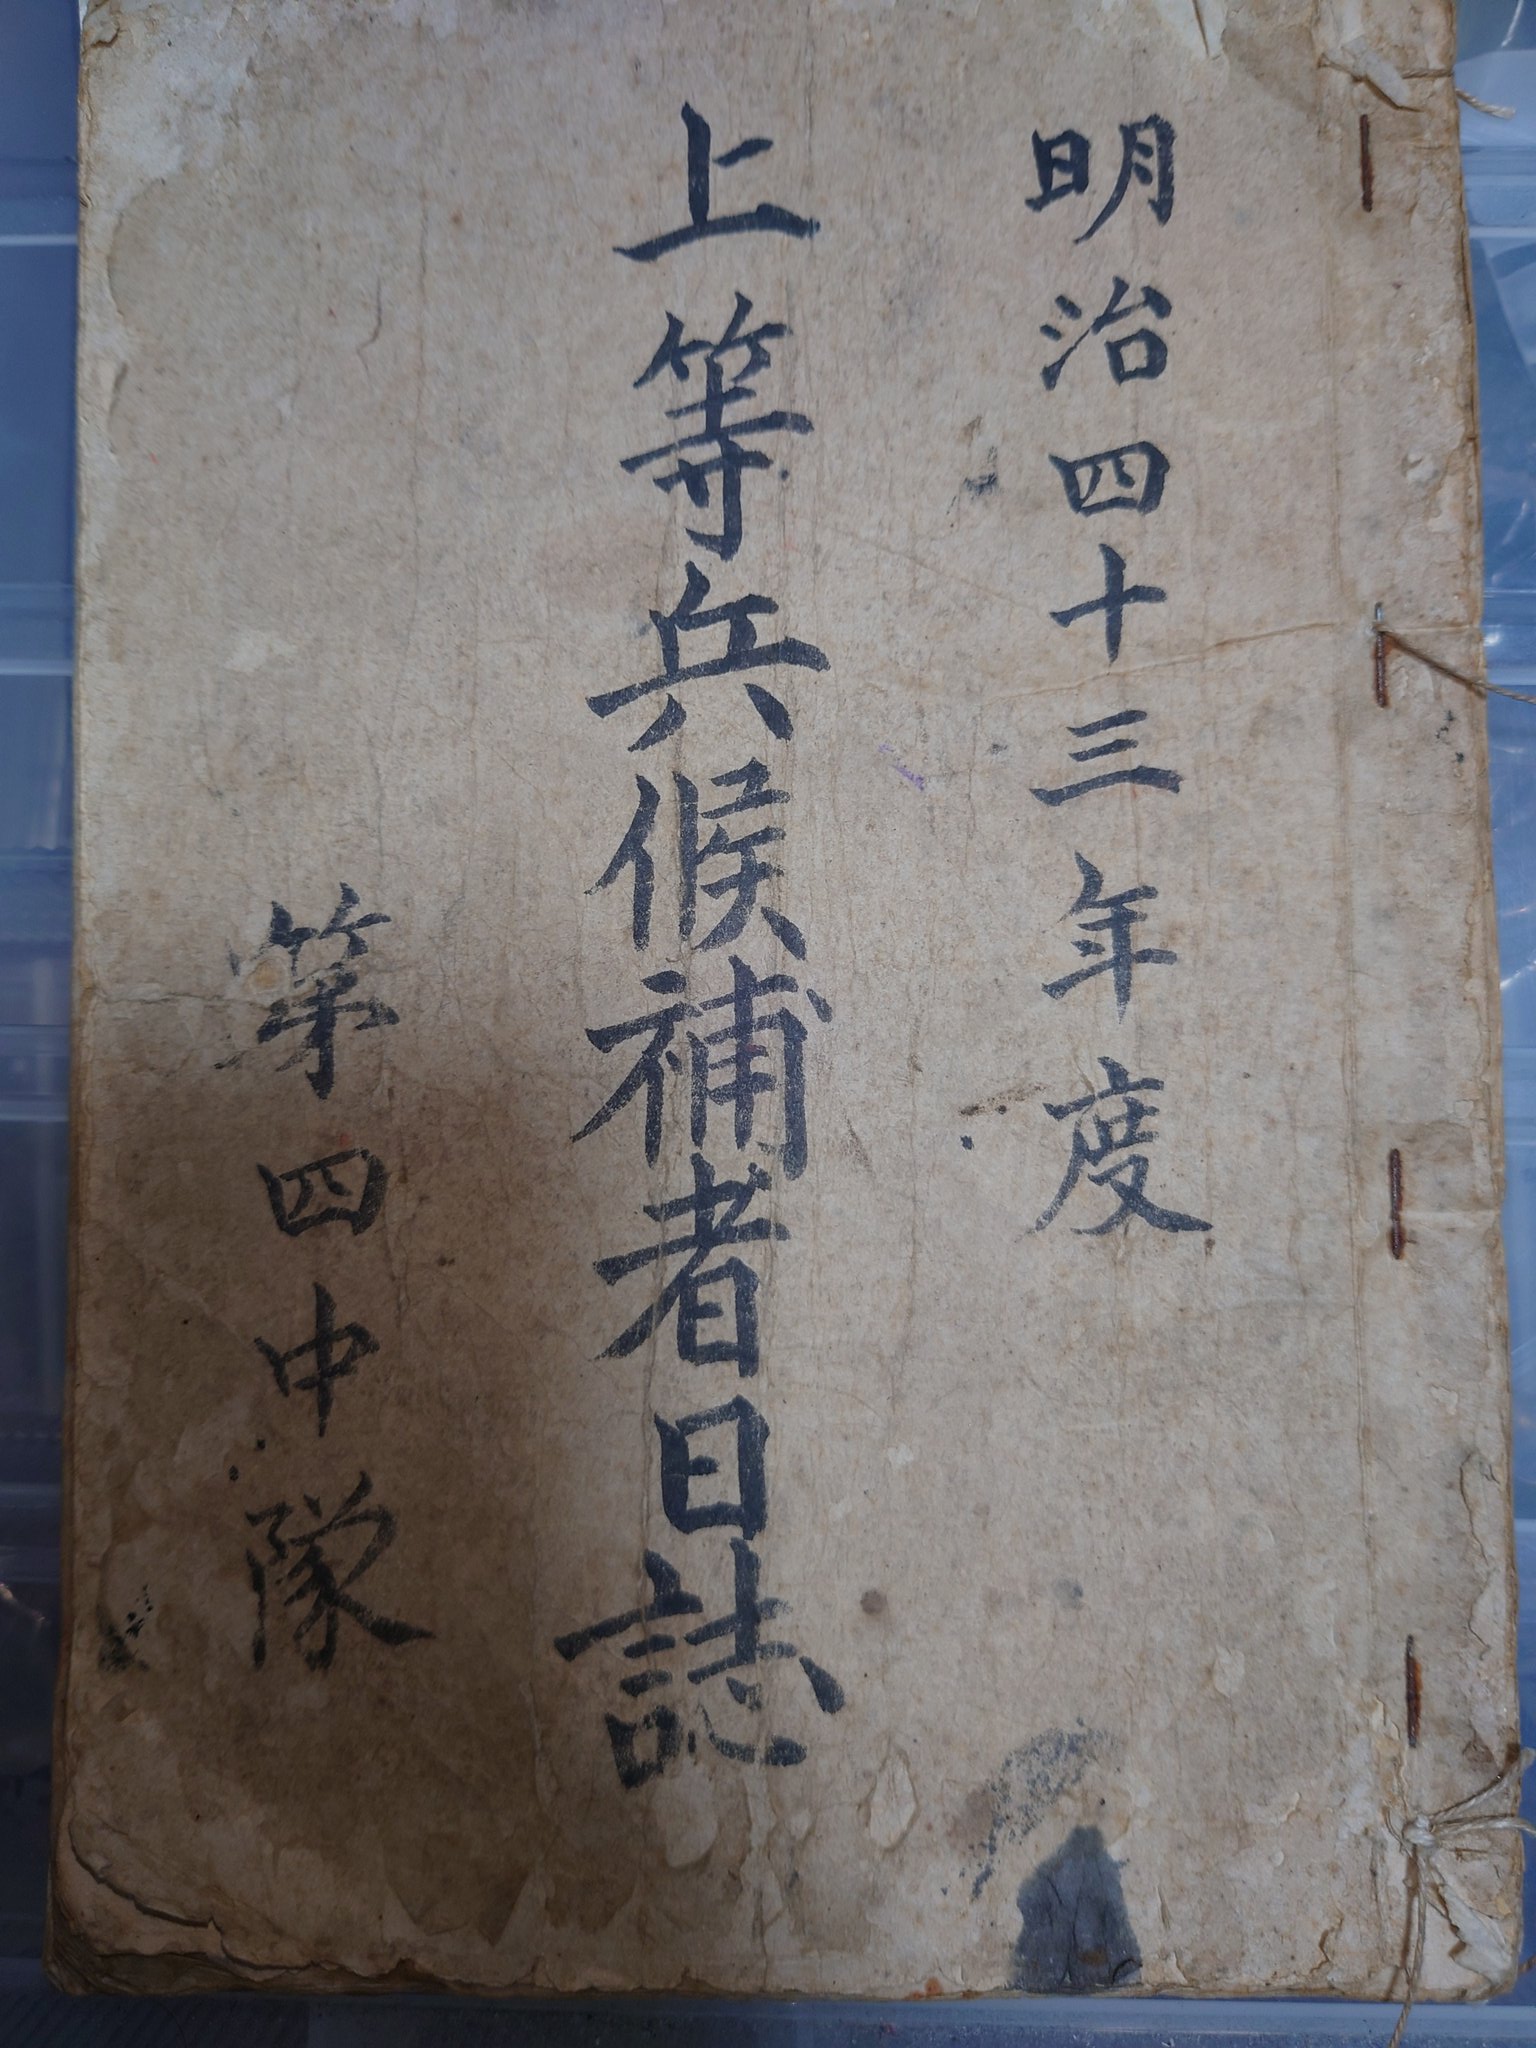 明治四十三年度
上等兵候補者日誌
第四中隊